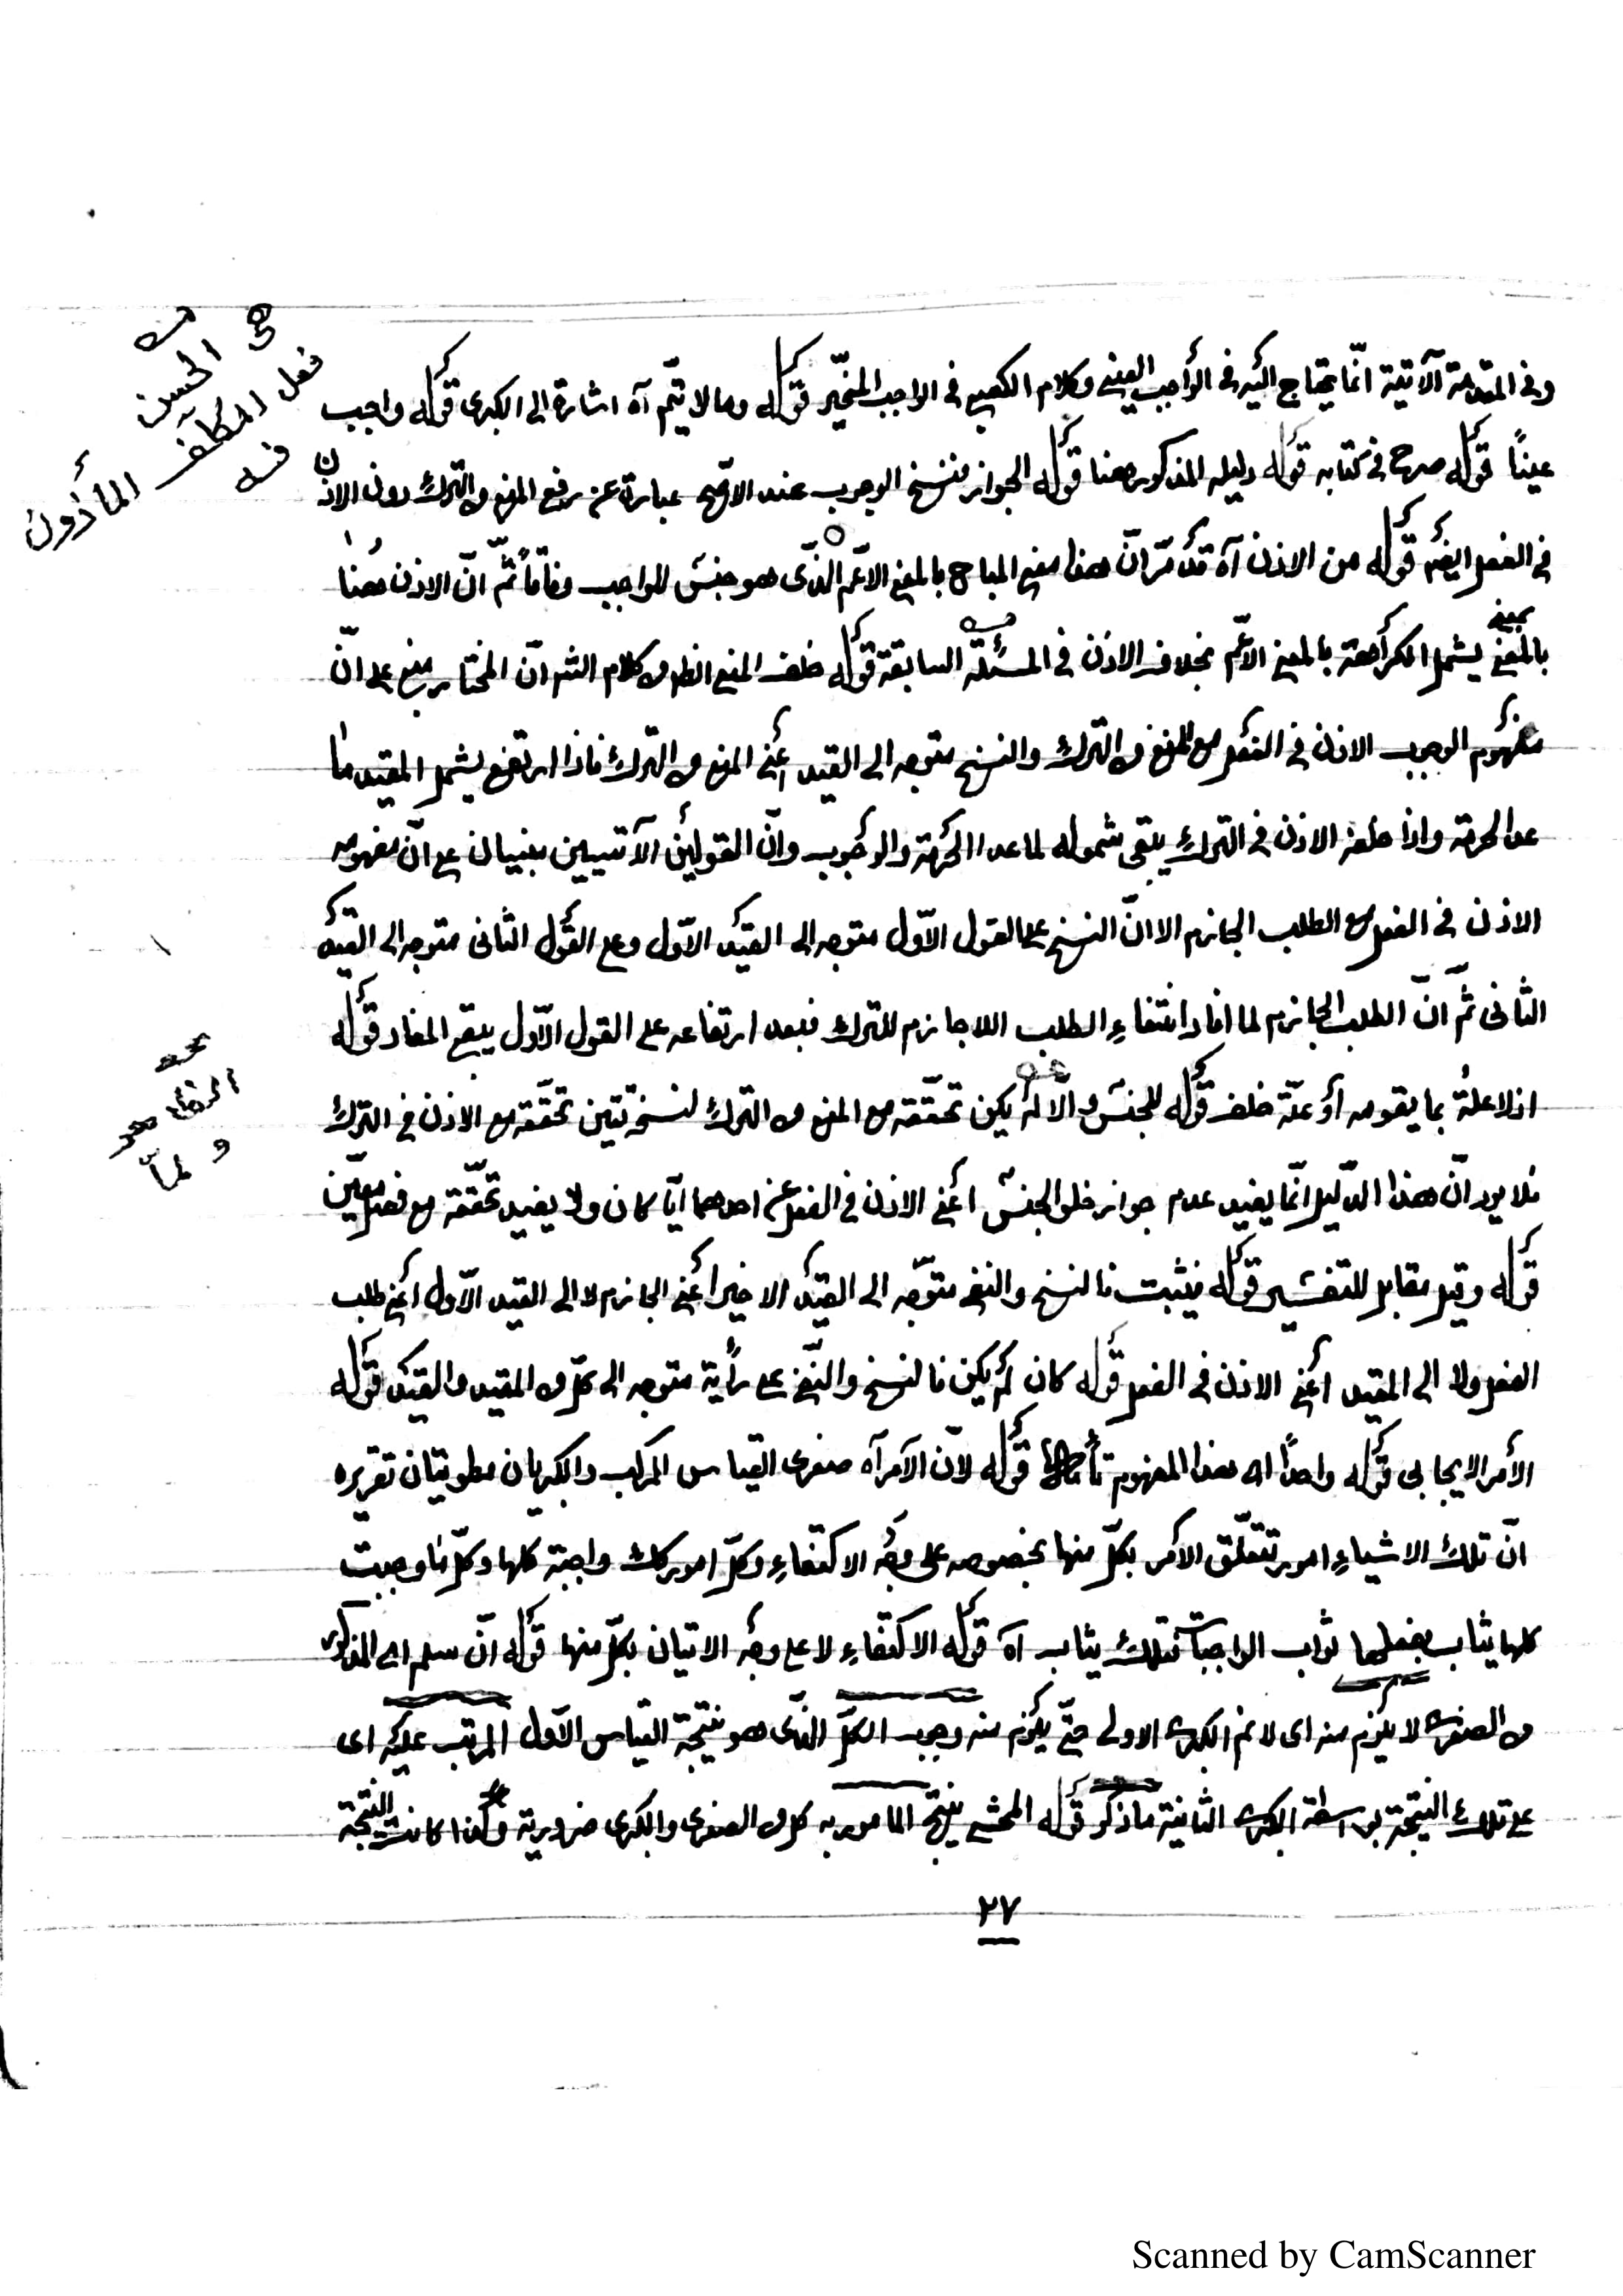 وفى المقدمة الآتية انّما يحتاج اليه فى الواجب العينى وكلام الكعبى فى الواجب المخيّر قوله وما لا يتم آه اشارة الى الكبرى قوله واجب
عينًا قوله صرح فى كتابه قوله دليله المذكور ههنا قوله الجواز فنسخ الوجوب عند الاصح عبارة عن رفع المنع من الترك دون الاذن
فى الفعل ايضا قوله من الاذن آه قد مرّ انّ هذا معنى المباح بالمعنى الاعم الذى هو جنس للواجب وفاقًا ثمّ انّ الاذن ههنا
بالمعنى يشمل الكراهة بالمعنى الاعم بخلاف الاذن فى المسئلة السابقة قوله خلف المنع الظ من كلام الش انّ المختار مبنى على انّ
مفهوم الوجوب الاذن فى الفعل مع المنع من الترك والنسخ متوجه الى القيد اعنى المنع من الترك فاذا ارتفع يشمل المقيد ما
عدا الحرمة واذا خلفه الاذن فى الترك يبقى شموله لما عدا الحرمة والوجوب وانّ القولين الآتيين مبنيان على انّ مفهومه
الاذن فى الفعل مع الطلب الجازم الا انّ النسخ على القول الاوّل متوجه الى القيد الاوّل وعلى القول الثانى متوجه الى القيد
الثانى ثمّ انّ الطلب الجازم لما افاد انتفاء الطلب اللاجازم للترك فبعد ارتفاعه على القول الاوّل يبقى المفاد قوله
اذ لا علة بما يقومه او علّة خلف قوله للجنس والّا لم يكن تحقّقه مع المنع من الترك لنسخ تين تحقّقه مع الاذن فى الترك
فلا يرد انّ هذا الدليل انّما يفيد عدم جواز خلو الجنس اعنى الاذن فى الفعل عن احدهما ايّا كان ولا يفيد تحقّقه مع فصل معيّن
قوله وقيل مقابل للتفسير قوله فيثبت فالنسخ والنفى متوجّه الى القيد الاخير اعنى الجازم لا الى القيد الاوّل اعنى طلب
الفعل ولا الى المقيد اعنى الاذن فى الفعل قوله كان لم يكن فالنسخ والنفى على رأيه متوجه الى كلّ من المقيد والقيد قوله
الأمر الايجابى قوله واحدًا اى هذا المفهوم قوله لانّ الامر آه صغرى القياس المركب والكبريان مطويتان تقريره
انّ تلك الاشياء امور تتعلّق الامر بكلّ منها بخصوصه على وجه الاكتفاء وكلّ امور كك واجبة كلها وكلّ ما وجبت
كلها يثاب بفعلها ثواب الواجبات فتلك يثاب آه قوله الاكتفاء لا على وجه الاتيان بكلّ منها قوله انّ سلم اى المذكور
من الصغرى لا يلزم منه اى لا نم الكبرى الاولى حتّى يلزم منه وجوب الكلّ الذى هو نتيجة القياس الاوّل المرتب عليه اى
على تلك النتيجة بواسطة الكبرى الثانية ما ذكر قوله المحشى ينتج المامور به كل من الصغرى والكبرى ضرورية وكذا كانت النتيجة
٢٧
هى الحسن
فعل المكلف المأذون
فيه
الظاهر
ولمّا
Scanned by CamScanner